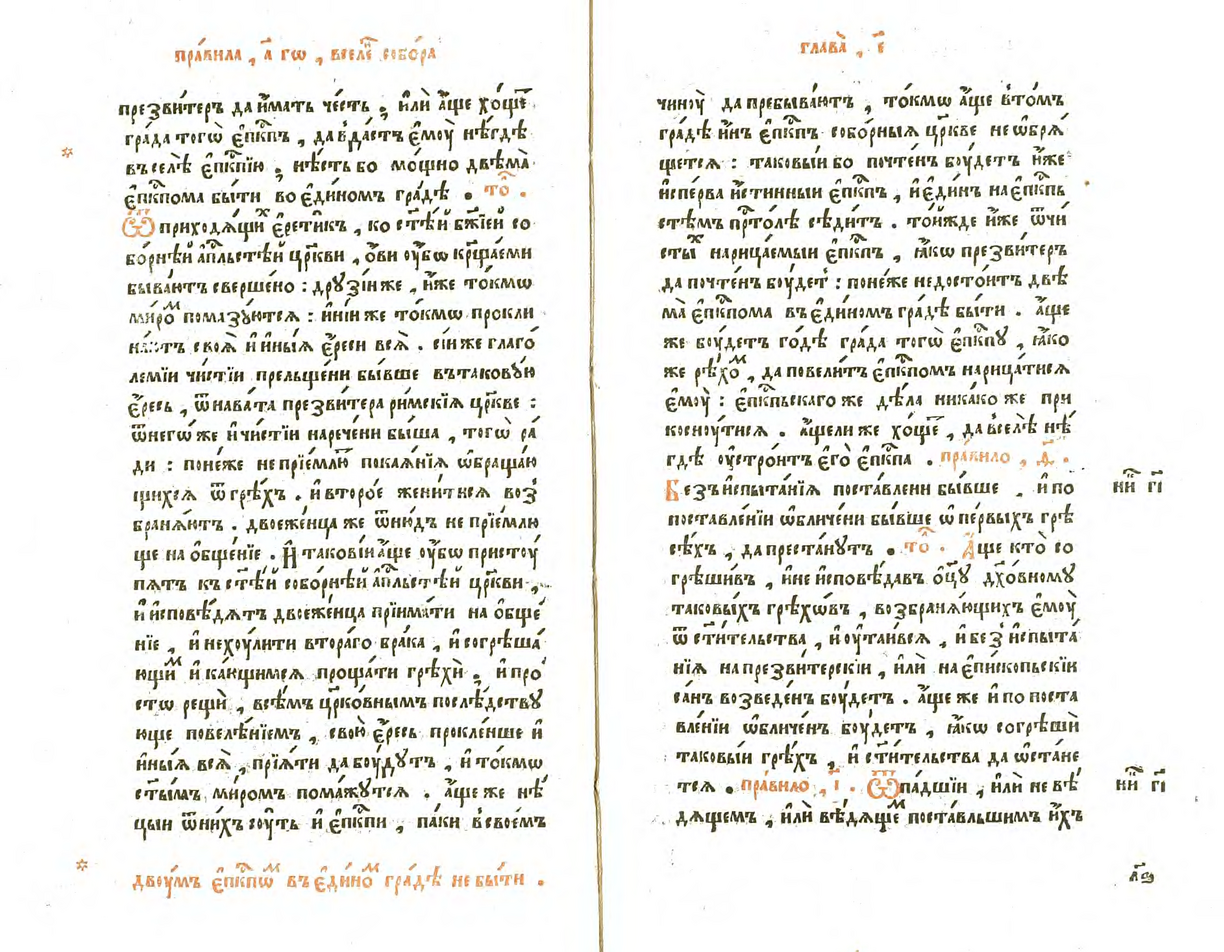 пра́вила , а҃ гѡ , вселе́ⷩ собо́ра
презви́теръ да и҆́мать че́сть , и҆лѝ а҆́ще хо́щеⷮ
гра́да тогѡ̀ є҆пⷭ҇кпъ , да в̾да́стъ є҆моу̀ нѣ́гдѣ
въ селѣ̀ є҆пⷭ҇кпїю , нѣ́сть бо мо́щно двѣ́ма
є҆пⷭ҇кпома бы́ти во є҆ди́номъ гра́дѣ . то́ⷧ .
Ѿ приходѧ́щиⷯ є҆рети́къ , ко ст҃ѣ́й бж҃їей со
бо́рнѣй а҆пⷭ҇льстѣй цр҃кви , ѻ҆́ви оу҆́бѡ кр҃ща́еми
быва́ютъ сверше́но : друзі́и же , и҆́же то́кмѡ
ми́роⷨ пома́зуютсѧ : и҆ні́и же то́кмѡ прокли
на́ютъ своѧ̀ и҆ и҆́ныѧ є҆́реси всѧ̀ . сі́и же глаго́
лемїи чи́стїи прельще́ни бы́вше въ такову́ю
є҆́ресь , ѿ нава́та презви́тера ри́мскїѧ цр҃кве :
ѿ негѡ́ же и҆ чи́стїи нарече́ни бы́ша , тогѡ̀ ра́
ди : поне́же не прїе́млюⷮ покаѧ́нїѧ ѡ҆браща́ю
щихсѧ ѿ грѣ́хъ . и҆ второ́е жени́тисѧ воз̾
бранѧ́ютъ . двоеже́нца же ѿню́дъ не прїе́млю
ще на ѻ҆бще́нїе . И҆ такові́и а҆́ще оу҆́бѡ присто́у
пѧтъ къ ст҃ѣ́й собо́рнѣй а҆пⷭ҇льстѣй цр҃кви ,
и҆ и҆сповѣ́дѧтъ двоеже́нца прїима́ти на ѻ҆бще́
нїе , и҆ не хоу́лити втора́го бра́ка , и҆ согрѣша́
ющиⷨ и҆ ка́ющимсѧ проща́ти грѣхѝ , и҆ про́
стѡ рещѝ , всѣ́мъ цр҃ко́внымъ послѣ́дству
юще повелѣ́нїемъ , свою̀ є҆́ресь прокле́нше и҆
и҆́ныѧ всѧ̀ , прїѧ́ти да боу́дутъ , и҆ то́кмѡ
ст҃ы́мъ ми́ромъ пома́жутсѧ . а҆́ще же нѣ́
цыи ѿ ни́хъ соу́ть и҆ є҆пⷭ҇кпи , па́ки в̾ свое́мъ
двоу́мъ є҆пⷭ҇кпѡⷨ въ є҆ди́ноⷨ гра́дѣ не бы́ти .
глава̀ , є҃
чиноу̀ да пребыва́ютъ , то́кмѡ а҆́ще в̾ то́мъ
гра́дѣ и҆́нъ є҆пⷭ҇кпъ собо́рныѧ цр҃кве не ѡ҆брѧ́
щетсѧ : таковы́и бо почте́нъ боу́детъ и҆́же
и҆спе́рва и҆́стинныи є҆пⷭ҇кпъ , и҆ є҆ди́нъ на є҆пⷭ҇кпь
стѣмъ прⷭ҇то́лѣ сѣди́тъ . то́йжде и҆́же ѿ чи́
стыⷯ нарица́емыи є҆пⷭ҇кпъ , ꙗ҆́кѡ презви́теръ
да почте́нъ боу́детъ : поне́же недосто́итъ двѣ
ма̀ є҆пⷭ҇кпома въ є҆ди́номъ гра́дѣ бы́ти . а҆́ще
же боу́детъ го́дѣ гра́да тогѡ̀ є҆пⷭ҇кпу , ꙗ҆́ко
же рѣ́хоⷨ , да повели́тъ є҆пⷭ҇кпомъ нарица́тисѧ
є҆моу̀ : є҆пⷭ҇кпьскаго же дѣ́ла ника́ко же при
косноу́тисѧ . а҆́щели же хо́щеⷮ , да в̾ селѣ̀ нѣ́
гдѣ оу҆стро́итъ є҆го̀ є҆пⷭ҇кпа . пра́вило , ѳ҃ .
Безъ и҆спыта́нїѧ поста́влени бы́вше , и҆ по
поставле́нїи ѡ҆бличе́ни бы́вше ѡ҆ пе́рвыхъ грѣ
сѣ́хъ , да преста́нутъ . то́ⷧ . А҆́ще кто̀ со
грѣши́въ , и҆ не и҆сповѣ́давъ ѻ҆ц҃у̀ дх҃о́вному
таковы́хъ грѣхѡ́въ , возбранѧ́ющихъ є҆моу̀
ѿ ст҃и́тельства , и҆ оу҆таи́всѧ , и҆ без̾ и҆спыта́
нїѧ на презви́терскїи , и҆лѝ на є҆пи́скопьскїи
са́нъ возведе́нъ боу́детъ . а҆́ще же и҆ по поста
вле́нїи ѡ҆бличе́нъ боу́детъ , ꙗ҆́кѡ согрѣшѝ
таковы́и грѣ́хъ , и҆ ст҃и́тельства да ѡ҆ста́не
тсѧ . пра́вило , і҃ . Ѿпа́дшїи , и҆лѝ не вѣ́
дѧщемъ , и҆лѝ вѣ́дѧщеⷨ поста́вльшимъ и҆́хъ
ни́ⷦ гі҃
ни́ⷦ гі҃